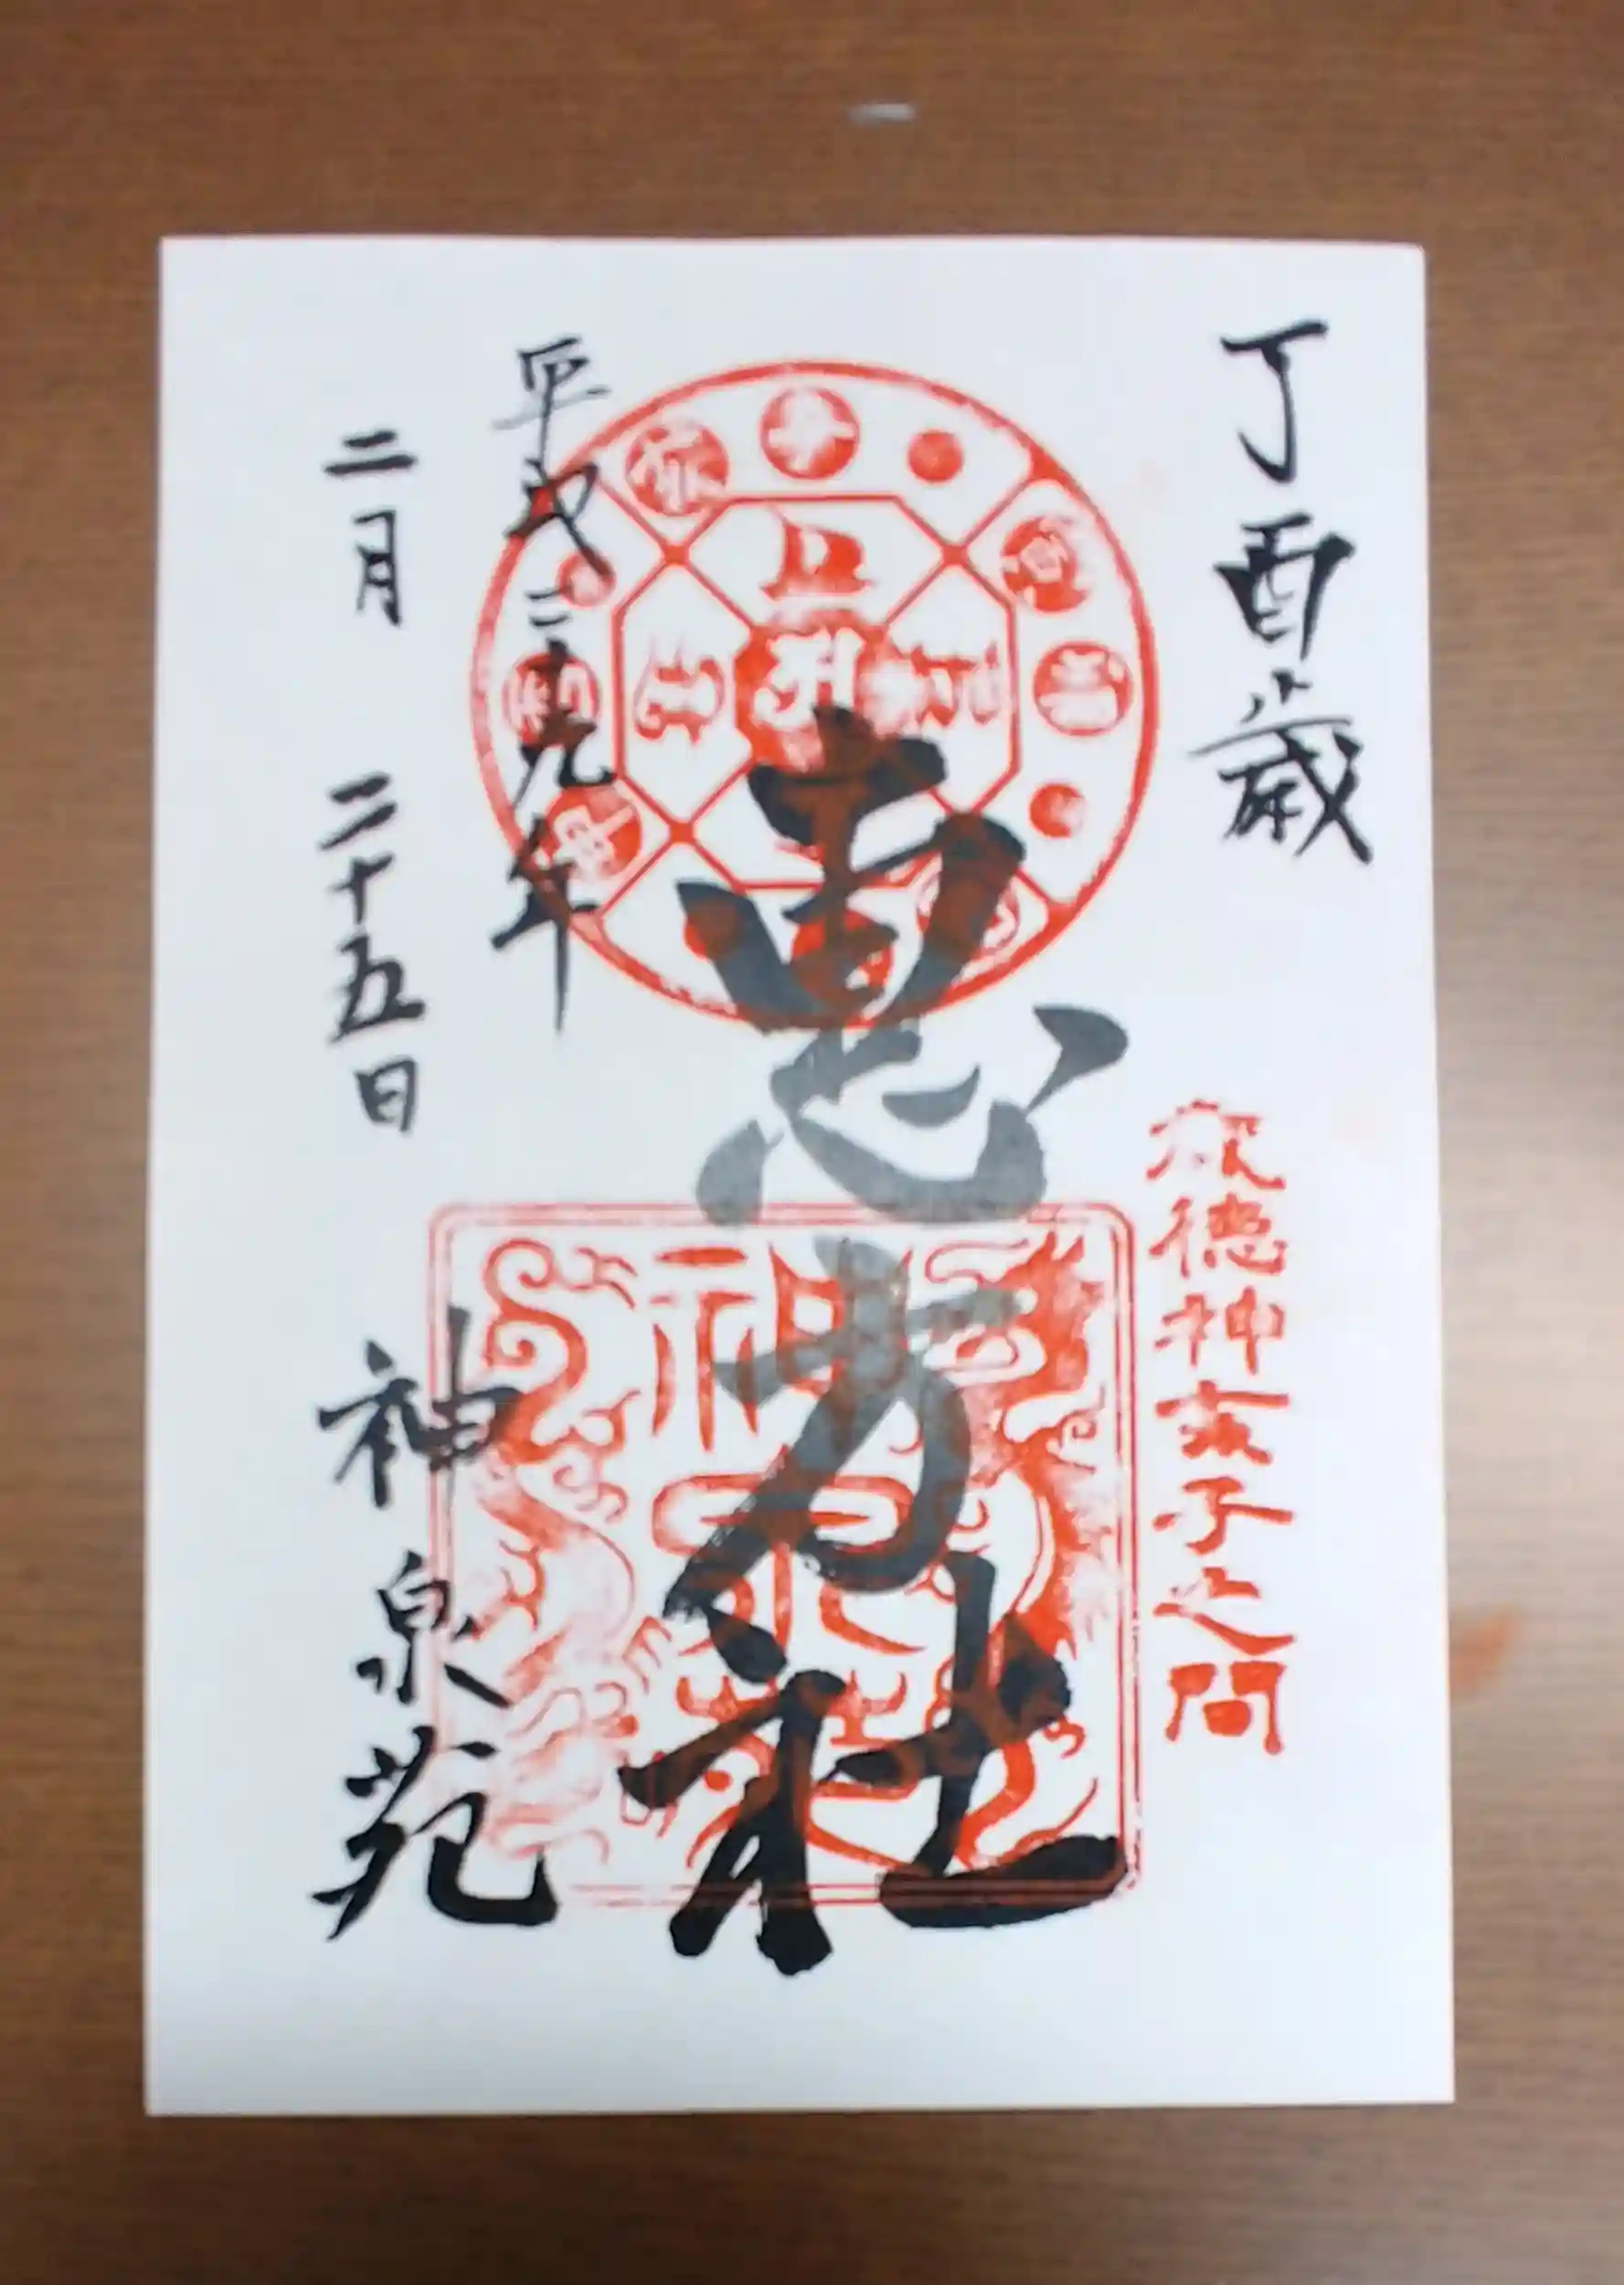 丁酉歳
歳徳神亥子之間
恵方社
平成二十九年
二月二十五日
神泉苑
神泉苑